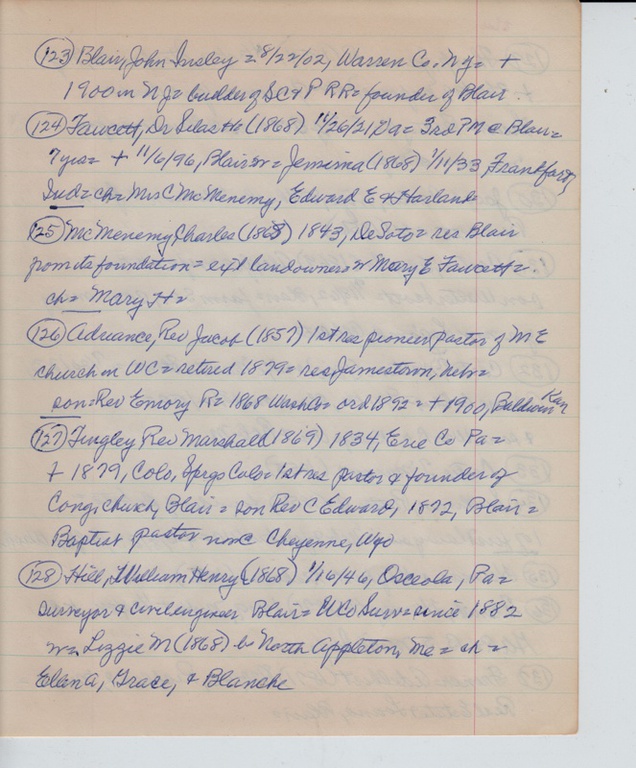 (123) Blair, John Insley = 8/22/02, Warren Co. NJ = +
1900 in NJ = builder of SC & P RR = founder of Blair.
(124) Fawcett, Dr Silas H (1868) 11/26/21, Va = 3rd PM @ Blair =
7 yrs = + 11/6/96, Blair w = Jemima (1868) 1/11/33, Frankfort,
Ind = ch = Mrs C McMenemy, Edward E & Harland
(125) McMenemy, Charles (1868) 1843, DeSoto = res Blair
from its foundation = ext landowner = w Mary E Fawcett =
ch = Mary H =
(126) Adriance, Rev Jacob (1857) 1st res pioneer pastor of ME
church in WC = retired 1879 = res Jamestown, Neb =
son = Rev Emory R = 1868 Wash Co = ord 1892 = + 1900, Baldwin Kan
(127) Tingley Rev Marshall (1869) 1834, Erie Co Pa =
+ 1879, Colo, Spgs Colo = 1st res pastor & founder of
Cong. church, Blair = son Rev C Edward, 1872, Blair =
Baptist pastor now @ Cheyenne, Wyo
(128) Hill, William Henry (1868) 1/16/46, Osceola, Pa =
surveyor & civil engineer Blair = WCo Surv = since 1882
w = Lizzie M (1868) b North Appleton, Me = ch =
Elena, Grace, & Blanche